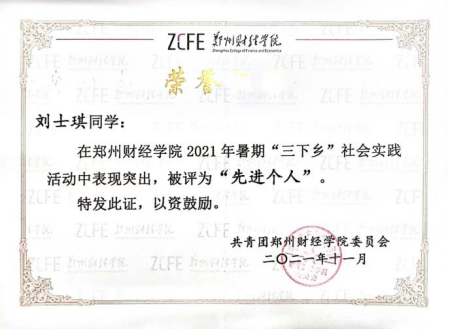 ZCFE 郑州财经学院
Zhengzhou College of Finance and Economics
荣誉
刘士琪同学：
在郑州财经学院 2021 年暑期“三下乡”社会实践
活动中表现突出，被评为“先进个人”。
特发此证，以资鼓励。
共青团郑州财经学院委员会
二〇二一年十一月